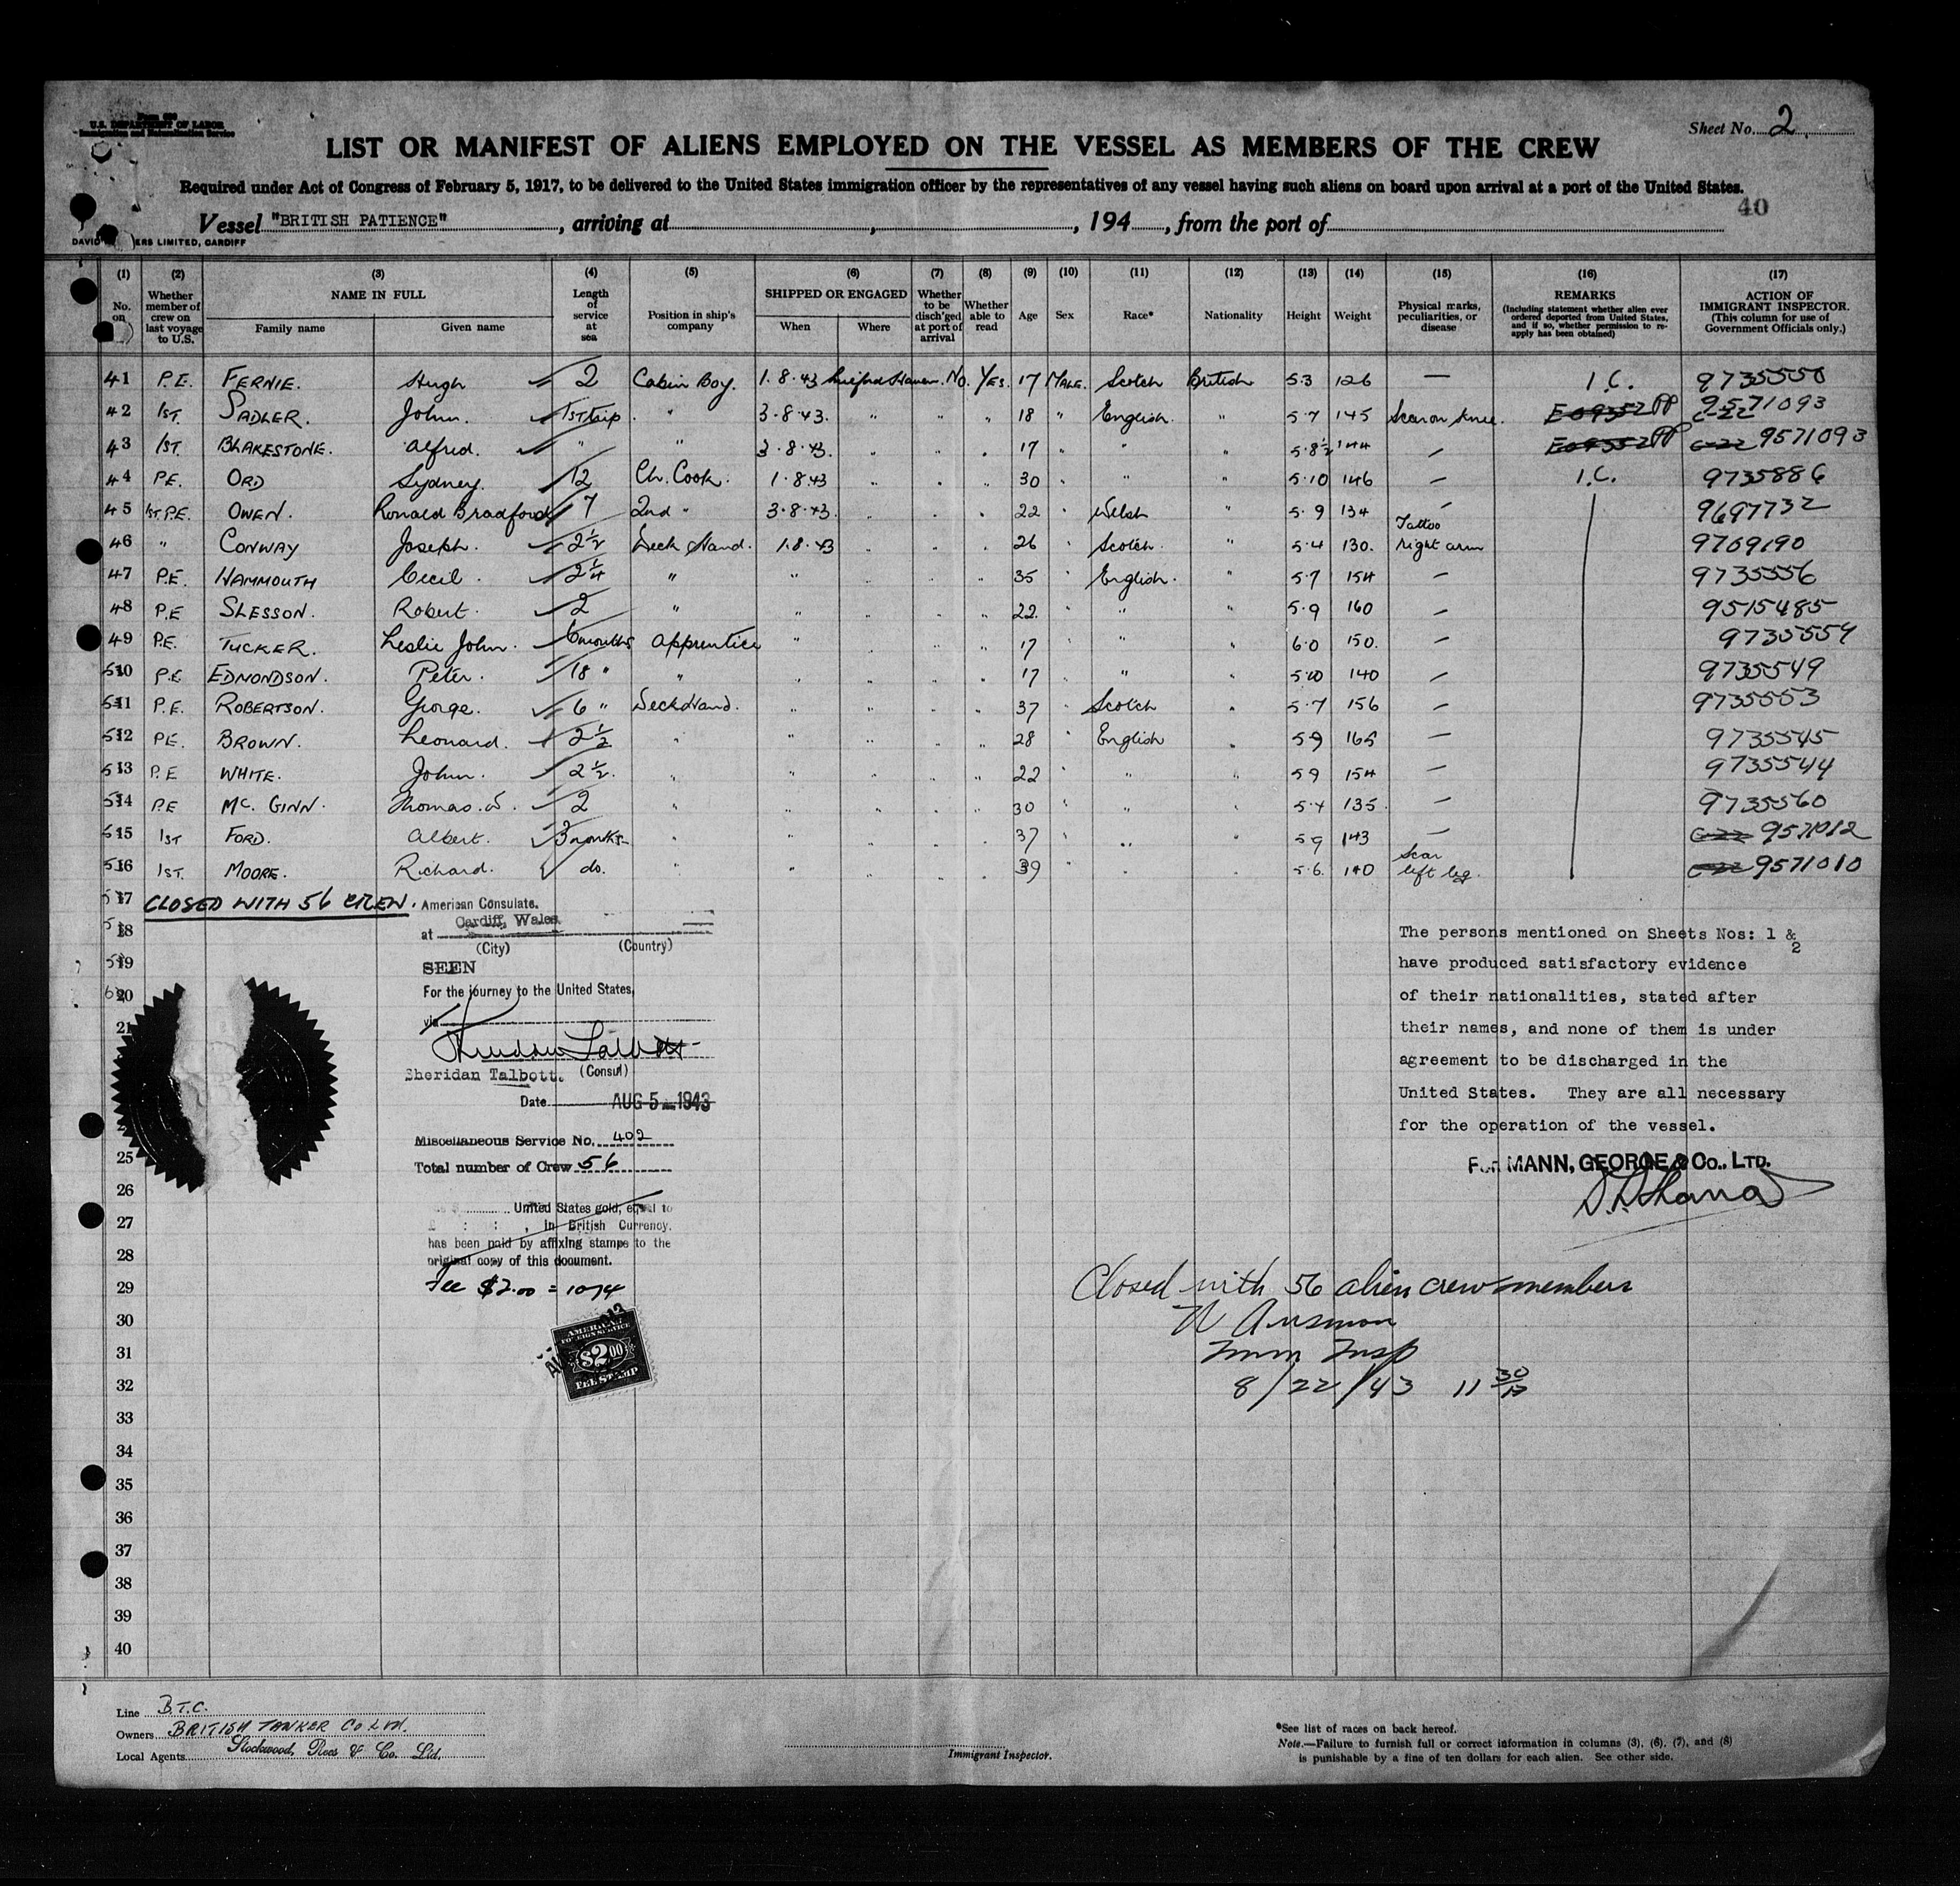 Form 680
U.S. DEPARTMENT OF LABOR
Immigration and Naturalization Service
Sheet No. 2
LIST OR MANIFEST OF ALIENS EMPLOYED ON THE VESSEL AS MEMBERS OF THE CREW
Required under Act of Congress of February 5, 1917, to be delivered to the United States immigration officer by the representatives of any vessel having such aliens on board upon arrival at a port of the United States.
40
Vessel "BRITISH PATIENCE", arriving at , , 194 , from the port of
DAVID ERS LIMITED, CARDIFF
(1) (2) (3) (4) (5) (6) (7) (8) (9) (10) (11) (12) (13) (14) (15) (16) (17)
No. on
Whether member of crew on last voyage to U.S.
NAME IN FULL
Family name Given name
Length of service at sea
Position in ship's company
SHIPPED OR ENGAGED
When Where
Whether to be disch'ged at port of arrival
Whether able to read
Age Sex Race* Nationality Height Weight
Physical marks, peculiarities, or disease
REMARKS
(Including statement whether alien ever ordered deported from United States, and if so, whether permission to re-apply has been obtained)
ACTION OF IMMIGRANT INSPECTOR
(This column for use of Government Officials only.)
41 P.E. FERNIE. Hugh 2 Cabin Boy. 1.8.43 Milford Haven. No. YES. 17 MALE. Scotch British 5.3 126 — I.C. 9735550
42 1ST. SADLER. John. 1ST trip " 3.8.43. " " " 18 " English. " 5.7 145 Scar on knee. E09352 PP C-22 9571093
43 1ST. BLAKESTONE. Alfred. " " 3.8.43. " " " 17 " " " 5.8½ 144 — PP C-22 9571093
44 P.E. ORD Sydney. 12 Ch. Cook. 1.8.43 " " " 30 " " " 5.10 146 — I.C. 9735886
45 1ST P.E. OWEN. Ronald Bradford 7 2nd " 3.8.43. " " " 22 " Welsh " 5.9 134 — 9697732
46 " CONWAY Joseph. 2½ Deck Hand. 1.8.43 " " " 26 " Scotch. " 5.4 130. Tattoo right arm 9769190
47 P.E. HAMMOUTH Cecil. 2¼ " " " " " 35 " English. " 5.7 154 — 9735556
48 P.E SLESSON. Robert. 2 " " " " " 22. " " " 5.9 160 — 9515485
49 P.E. TUCKER. Leslie John. 6 months Apprentice " " " " 17 " " " 6.0 150. — 9735554
50 P.E EDMONDSON. Peter. 18 " " " " " " 17 " " " 5.10 140 — 9735549
51 P.E. ROBERTSON. George. 6 " Deck Hand. " " " " 37 " Scotch " 5.7 156 — 9735553
52 P.E. BROWN. Leonard. 2½ " " " " " 28 " English " 5.9 165 — 9735545
53 P.E WHITE. John. 2½. " " " " " 22 " " " 5.9 154 — 9735544
54 P.E MC. GINN. Thomas. 2 " " " " " 30 " " " 5.4 135. — 9735560
55 1ST FORD. Albert. 3 months " " " " 37 " " " 5.9 143 — C-22 9571012
56 1ST. MOORE. Richard. do. " " " " " 39 " " " 5.6. 140 Scar left leg. C-22 9571010
57 CLOSED WITH 56 CREW.
American Consulate.
at Cardiff, Wales
(City) (Country)
SEEN
For the journey to the United States,
via
Sheridan Talbott. (Consul)
Date AUG 5 - 1943
Miscellaneous Service No. 402
Total number of Crew 56
United States gold, equal to
£ : : , in British Currency.
has been paid by affixing stamps to the
original copy of this document.
Fee $2.00 = 10/4
AMERICAN
FOREIGN SERVICE
$2.00
FEE STAMP
The persons mentioned on Sheets Nos: 1 & 2
have produced satisfactory evidence
of their nationalities, stated after
their names, and none of them is under
agreement to be discharged in the
United States. They are all necessary
for the operation of the vessel.
FOR MANN, GEORGE & CO., LTD.
Closed with 56 alien crew members
Imm Insp
8/22/43 11 30
18
19
20
21
25
26
27
28
29
30
31
32
33
34
35
36
37
38
39
40
Line B.T.C.
Owners BRITISH TANKER CO LTD.
Local Agents Stockwood, Rees & Co. Ltd.
Immigrant Inspector.
*See list of races on back hereof.
Note.—Failure to furnish full or correct information in columns (3), (6), (7), and (8)
is punishable by a fine of ten dollars for each alien. See other side.